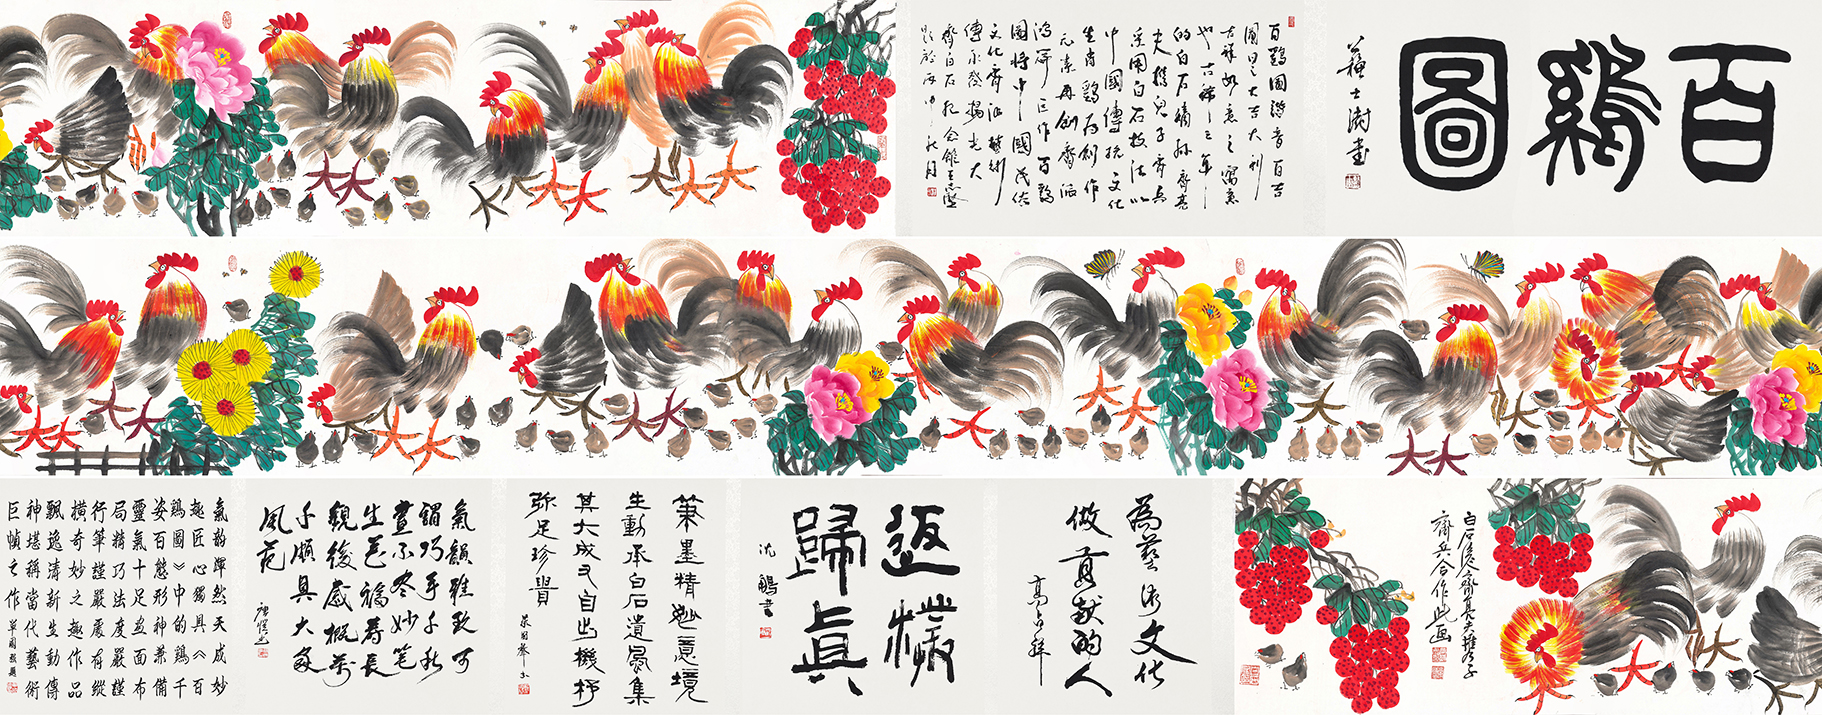 百鷄圖
蘇士澍書
百鷄圖諧音百吉
圖曰之大吉大利
吉祥如意之寓意
也古稀之年
的白石嫡孫齊亮
夫攜兒子齊兵
采用白石技法以
中國傳統文化
生肖鷄為創作
元素再創齊派
鴻篇巨作百鷄
圖將中國民俗
文化齊派藝術
傳承發揚光大
齊白石紀念館王志堅
題於丙申秋月
白石后裔齊亮夫攜子
齊兵合作此画
為藝術文化
做貢獻的人
高占祥
返樸
歸真
沈鵬書
筆墨精妙意境
生動承白石遺風集
其大成又自出機杼
弥足珍貴
蔡國聲
氣韻雅致可
謂巧手千秋
畫不冬妙筆
生花福壽長
觀後感概萬
千頗具大家
風范
氣韵渾然天成妙
趣匠心獨具《百
鷄圖》中的鷄千
姿百態形神兼備
靈氣十足畫面布
局精巧法度嚴謹
行筆謹嚴處有縱
橫奇妙之趣作品
飄逸清新生動傳
神堪稱當代藝術
巨幀之作
單國強題